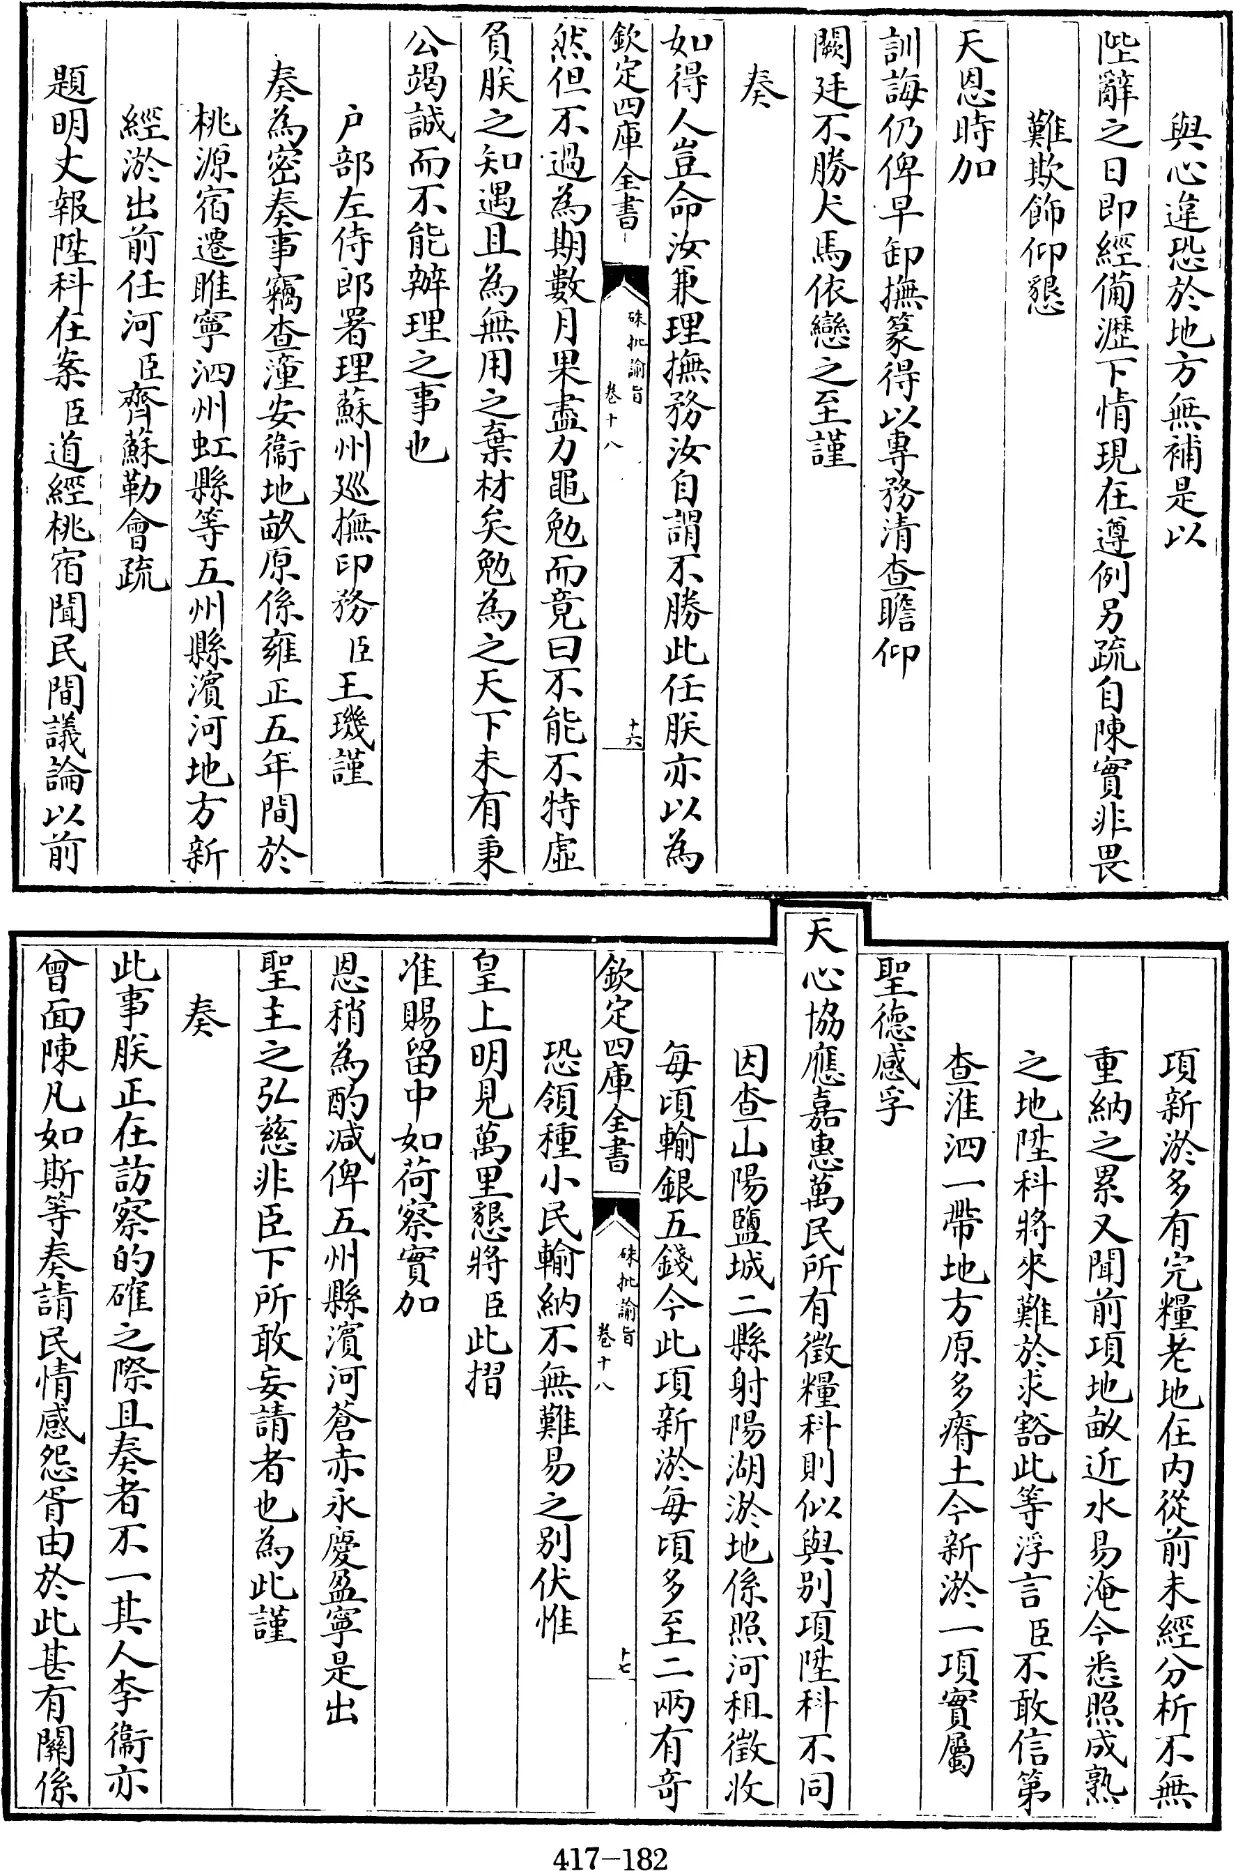 與心違恐於地方無補是以
陛辭之日即經備瀝下情現在遵例另疏自陳實非畏
難欺飾仰懇
天恩時加
訓誨仍俾早卸撫篆得以專務清查瞻仰
闕廷不勝犬馬依戀之至謹
奏
如得人豈命汝兼理撫務汝自謂不勝此任朕亦以為
欽定四庫全書
硃批諭旨
卷十八
十六
然但不過為期數月果盡力黽勉而竟曰不能不特虛
負朕之知遇且為無用之棄材矣勉為之天下未有秉
公竭誠而不能辦理之事也
戶部左侍郎署理蘇州巡撫印務臣王璣謹
奏為密奏事竊查潼安衞地畝原係雍正五年間於
桃源宿遷睢寧泗州虹縣等五州縣濱河地方新
經淤出前任河臣齊蘇勒會疏
題明丈報陞科在案臣道經桃宿聞民間議論以前
項新淤多有完糧老地在内從前未經分析不無
重納之累又聞前項地畝近水易淹今悉照成熟
之地陞科將來難於求豁此等浮言臣不敢信第
查淮泗一帶地方原多瘠土今新淤一項實屬
聖德感孚
天心協應嘉惠萬民所有徵糧科則似與别項陞科不同
因查山陽鹽城二縣射陽湖淤地係照河租徵收
每頃輸銀五錢今此項新淤每頃多至二兩有奇
欽定四庫全書
硃批諭旨
卷十八
十七
恐領種小民輸納不無難易之别伏惟
皇上明見萬里懇將臣此摺
准賜留中如荷察實加
恩稍為酌減俾五州縣濱河蒼赤永慶盈寧是出
聖主之弘慈非臣下所敢妄請者也為此謹
奏
此事朕正在訪察的確之際且奏者不一其人李衞亦
曾面陳凡如斯等奏請民情感怨胥由於此甚有關係
417-182